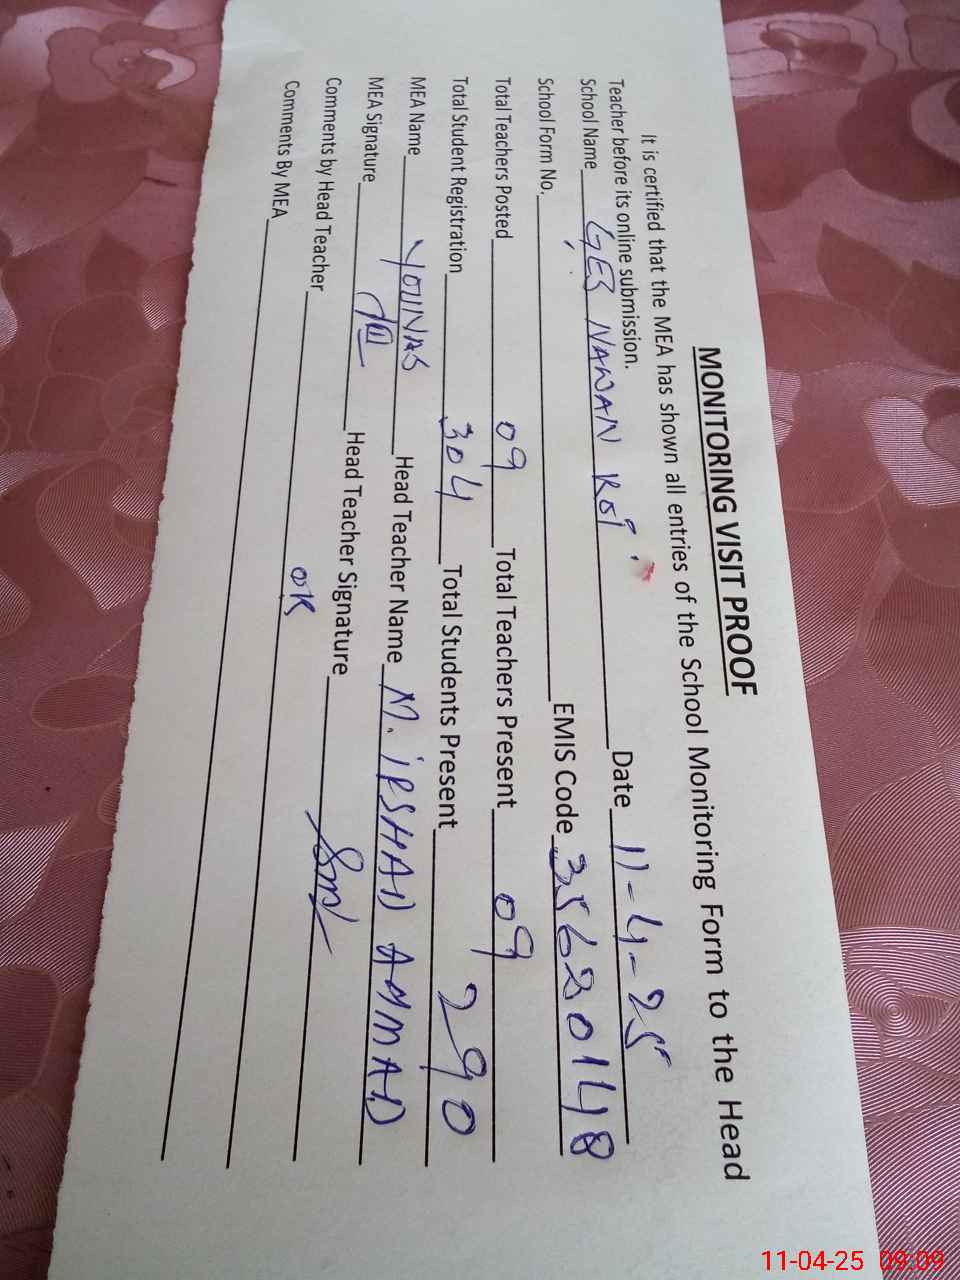 MONITORING VISIT PROOF
It is certified that the MEA has shown all entries of the School Monitoring Form to the Head
Teacher before its online submission.
School Name GES NAWAN Date 11-4-25
School Form No. EMIS Code 35620148
Total Teachers Posted 09 Total Teachers Present 09
Total Student Registration 304 Total Students Present 290
MEA Name YOUNAS Head Teacher Name M. IRSHAD AHMAD
MEA Signature Head Teacher Signature
Comments by Head Teacher OK
Comments By MEA
11-04-25 09:09